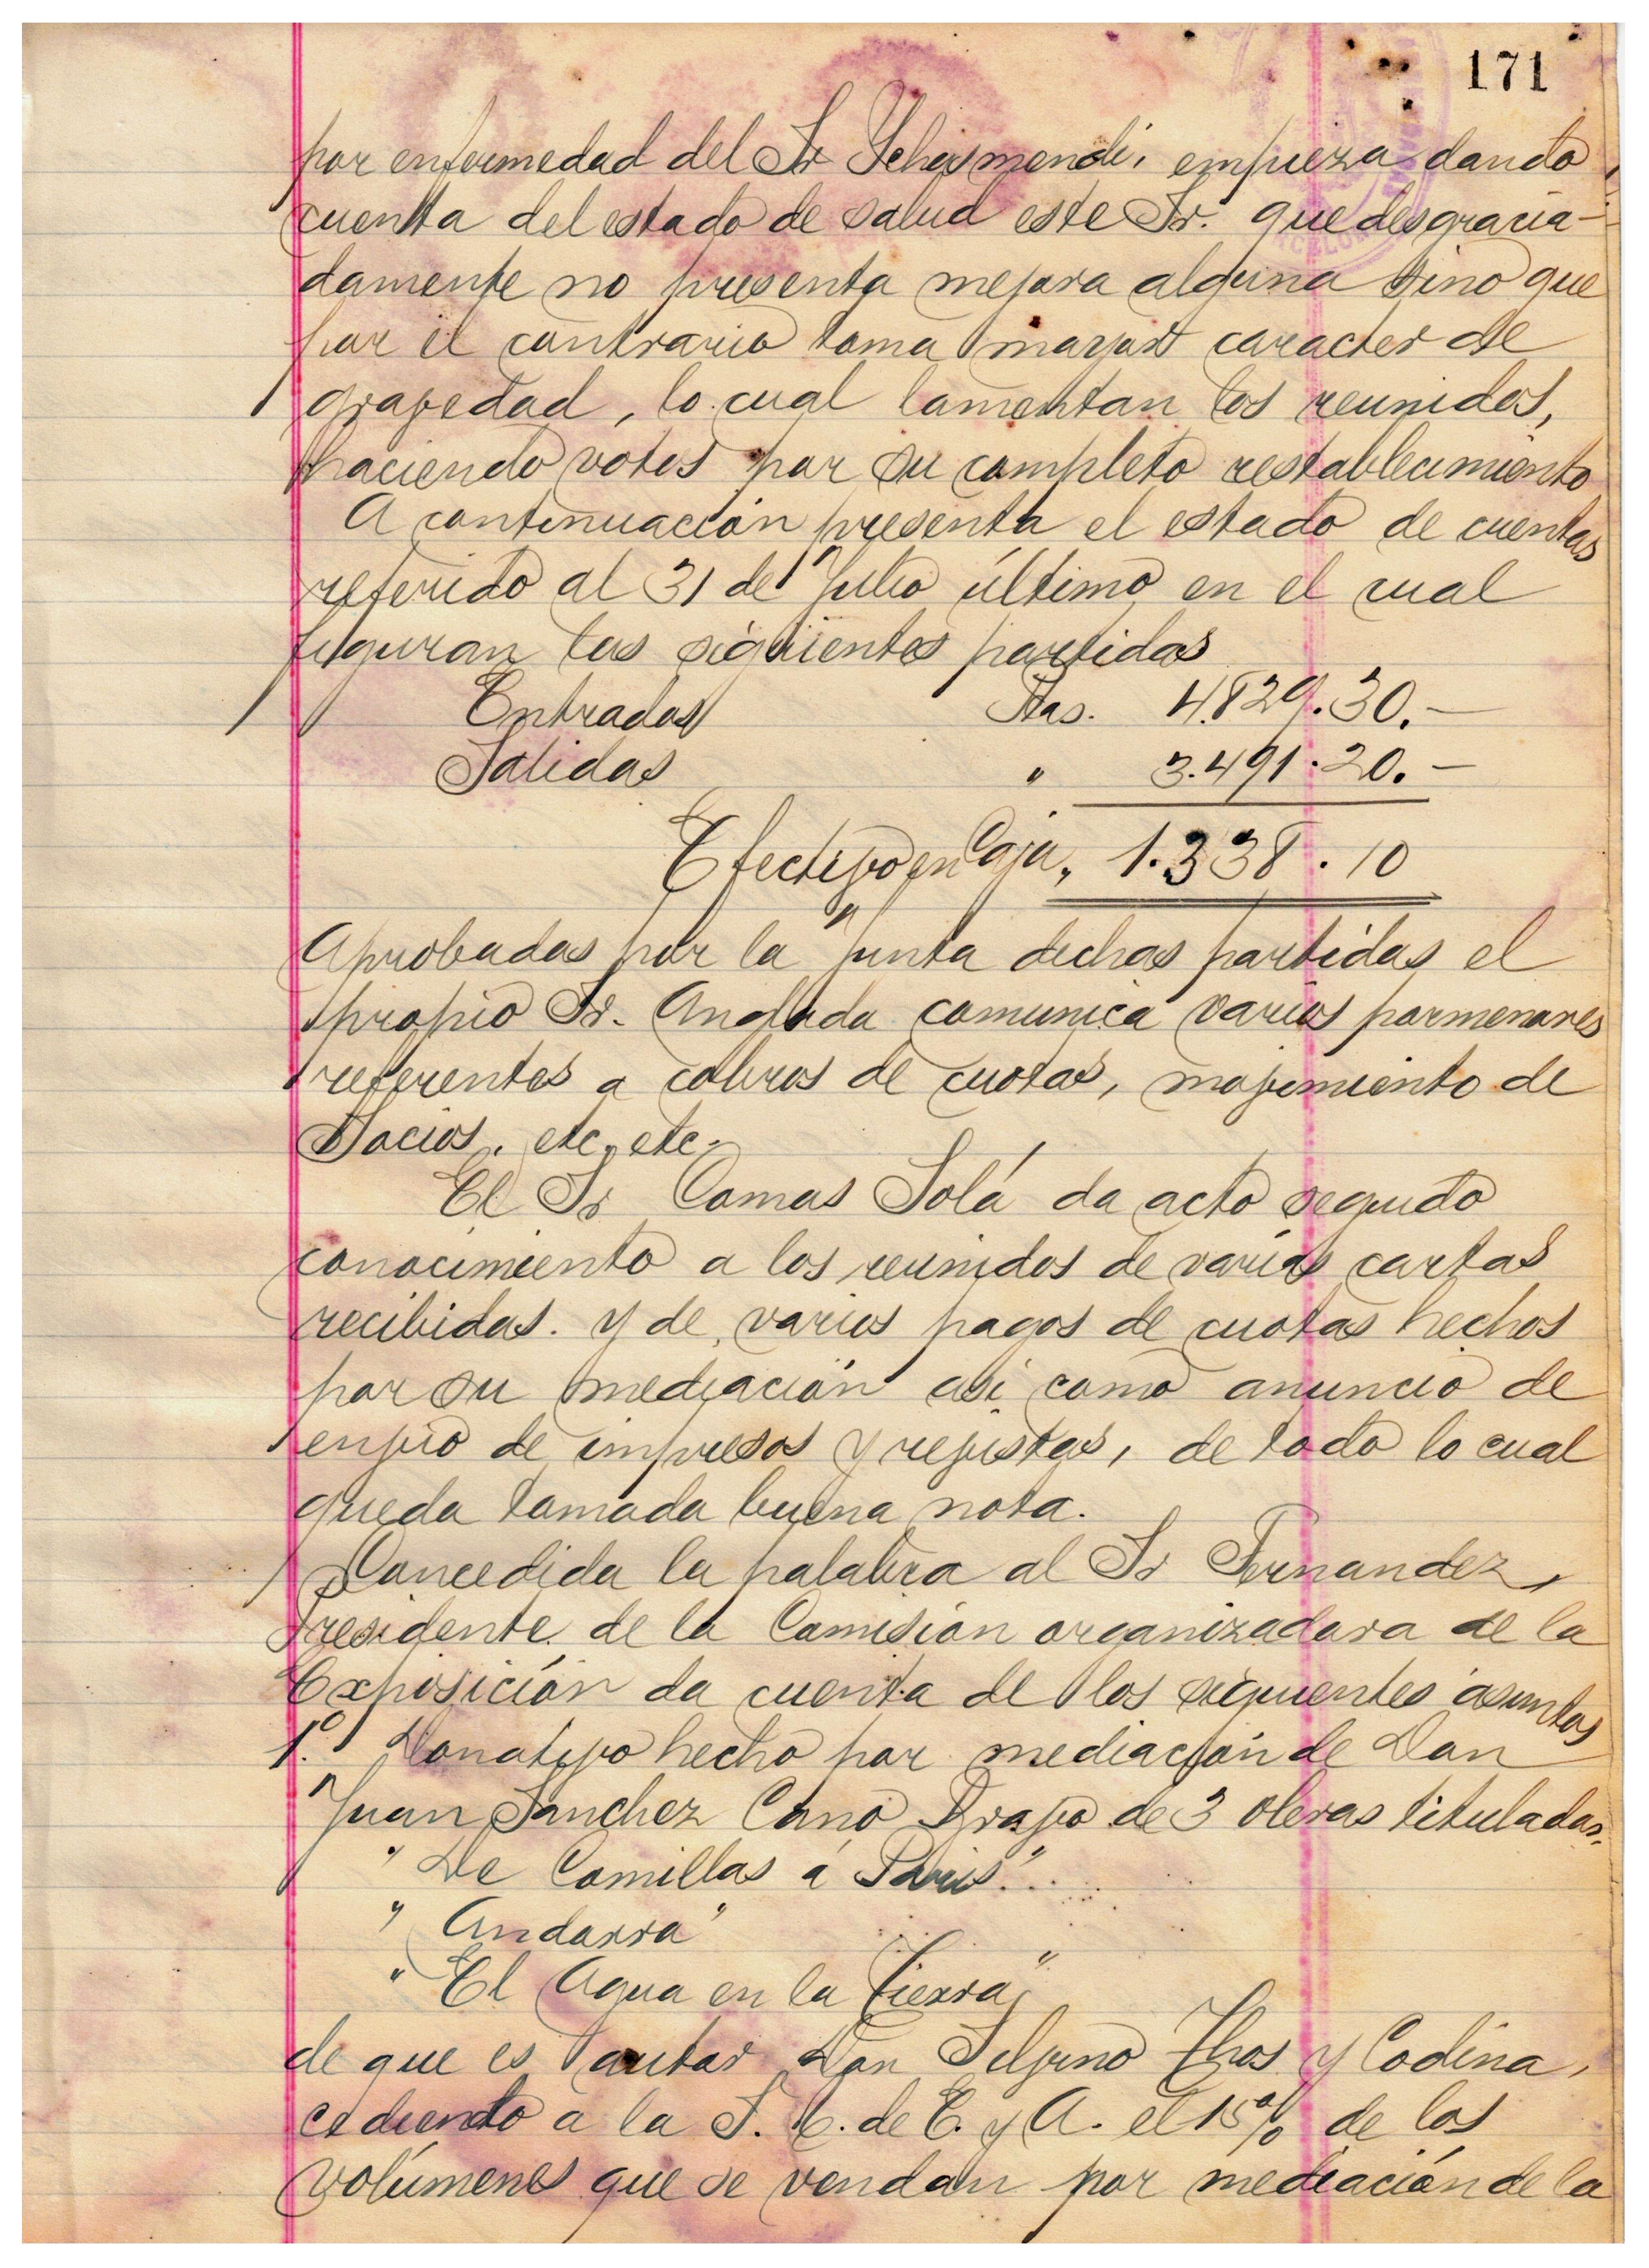 171
por enfermedad del Sr Ichasmendi, empieza dando
cuenta del estado de salud este Sr. que desgracia-
damente no presenta mejora alguna sino que
por el contrario toma mayor caracter de
gravedad, lo cual lamentan los reunidos,
haciendo votos por su completo restablecimiento
A continuación presenta el estado de cuentas
referido al 31 de Julio último en el cual
figuran las siguientes partidas
Entradas Ptas. 4.829.30.—
Salidas " 3.491.20.—
Efectivo en Caja, 1.338.10
Aprobadas por la Junta dichas partidas el
propio Sr. Andrada comunica varios pormenores
referentes a cobros de cuotas, movimiento de
Socios, etc, etc.
El Sr Comas Solá da acto seguido
conocimiento a los reunidos de varias cartas
recibidas. y de varios pagos de cuotas hechos
por su mediación asi como anuncio de
envio de impresos y revistas, de todo lo cual
queda tomada buena nota.
Concedida la palabra al Sr Fernandez,
Presidente de la Comisión organizadora de la
Exposición da cuenta de los siguientes asuntos
1.º Donativo hecho por mediación de Don
Juan Sanchez Cano Bravo de 3 obras tituladas.
"De Comillas á Paris"...
"Andorra"
"El Agua en la Tierra"
de que es autor Don Silvino Thos y Codina,
cediendo a la S. E. de E. y A. el 15% de los
volúmenes que se vendan por mediación de la